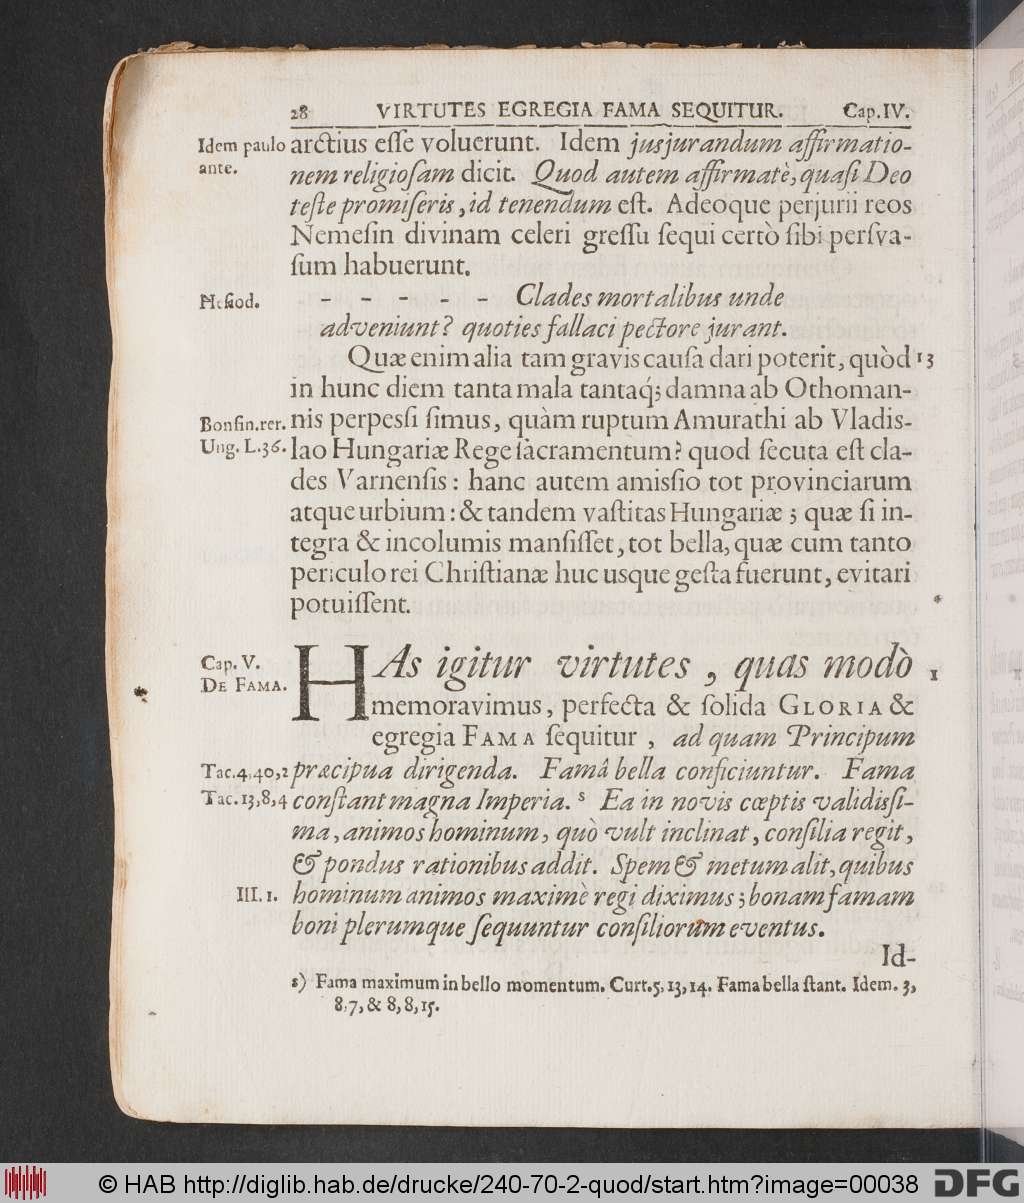 28 VIRTUTES EGREGIA FAMA SEQUITUR. Cap.IV.
Idem paulo arctius eſſe voluerunt. Idem jusjurandum affirmatio-
ante. nem religioſam dicit. Quod autem affirmatè, quaſi Deo
teſte promiſeris, id tenendum eſt. Adeoque perjurii reos
Nemeſin divinam celeri greſſu ſequi certò ſibi perſva-
ſum habuerunt.
Heſiod. - - - - - Clades mortalibus unde
adveniunt? quoties fallaci pectore jurant.
Quæ enim alia tam gravis cauſa dari poterit, quòd 13
in hunc diem tanta mala tantaq́; damna ab Othoman-
Bonfin.rer. nis perpesſi ſimus, quàm ruptum Amurathi ab Vladis-
Ung. L.36. lao Hungariæ Rege ſacramentum? quod ſecuta eſt cla-
des Varnenſis: hanc autem amisſio tot provinciarum
atque urbium: & tandem vaſtitas Hungariæ; quæ ſi in-
tegra & incolumis manſiſſet, tot bella, quæ cum tanto
periculo rei Chriſtianæ huc usque geſta fuerunt, evitari
potuiſſent.
Cap. V. HAs igitur virtutes, quas modò 1
DE FAMA. memoravimus, perfecta & ſolida GLORIA &
egregia FAMA ſequitur, ad quam Principum
Tac.4,40,2 præcipua dirigenda. Famâ bella conficiuntur. Fama
Tac.13,8,4 conſtant magna Imperia. s Ea in novis cœptis validisſi-
ma, animos hominum, quò vult inclinat, conſilia regit,
& pondus rationibus addit. Spem & metum alit, quibus
III. 1. hominum animos maximè regi diximus; bonam famam
boni plerumque ſequuntur conſiliorum eventus.
Id-
s) Fama maximum in bello momentum. Curt.5,13,14. Fama bella ſtant. Idem. 3,
8,7, & 8,8,15.
© HAB http://diglib.hab.de/drucke/240-70-2-quod/start.htm?image=00038
DFG